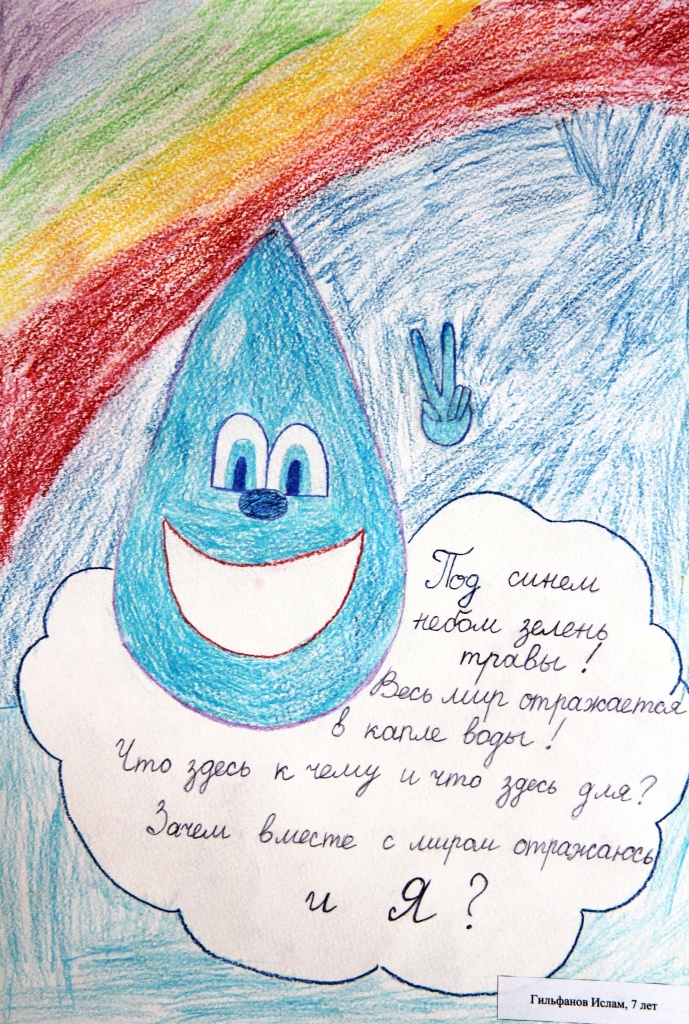 Под синем
небом зелень
травы!
Весь мир отражается
в капле воды!
Что здесь к чему и что здесь для?
Зачем вместе с миром отражаюсь
и Я?
Гильфанов Ислам, 7 лет